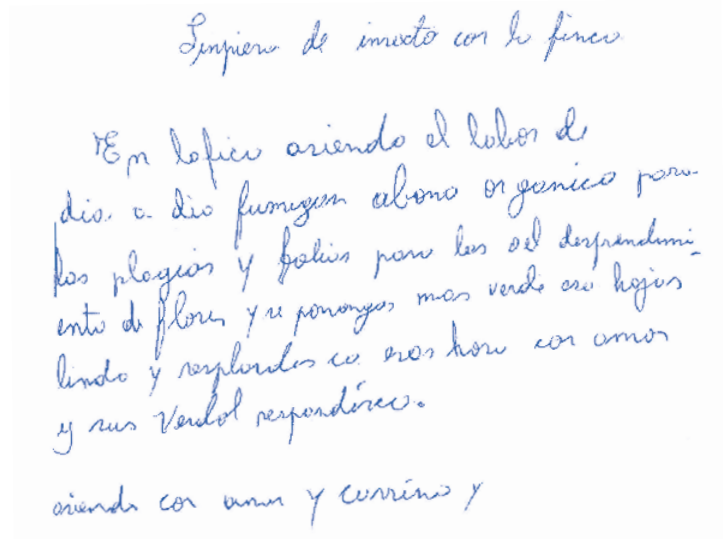 Linpiero de insecto con lo finca
En lafico asiendo el labor de
dia a dia fumigan abono organico para
las plagias y folios para las del desprendimi-
ento de flores y se pononga mas verde esa hojas
lindo y resplandes ca esas hora con amor
y sus Verdol respondórea.
asiendo con amor y carrino y